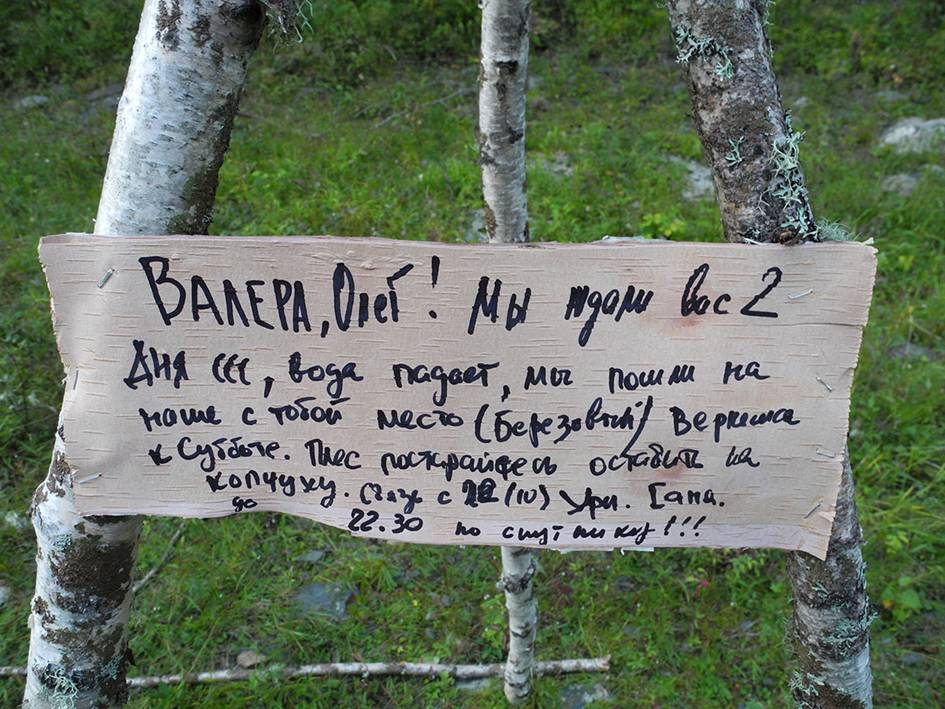 ВАЛЕРА, Олег! Мы ждали вас 2
Дня (((, вода падает, мы пошли на
наше с тобой место (Березовый) Вернемся
к Субботе. Плес постарайтесь оставить на
копчуху. Связь с (10) Ури. Сапа.
до 22.30 по спутнику!!!